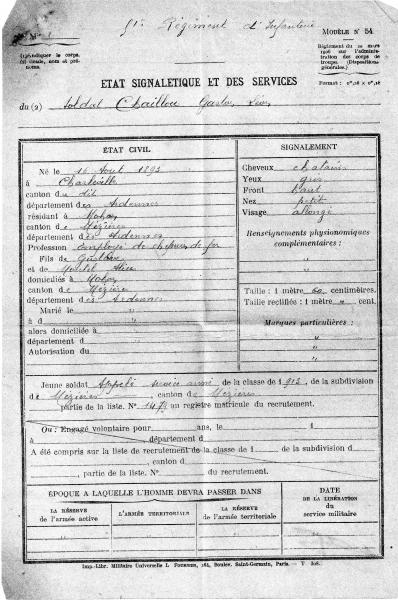 51e Régiment d'Infanterie
MODÈLE N° 54
(1) Indiquer le corps,
nom et pré-
noms.
Règlement du 10 mars
1906 sur l'adminis-
tration des corps de
troupes. (Dispositions
générales.)
ETAT SIGNALETIQUE ET DES SERVICES
du (2) Soldat Chaillou Gaston
ÉTAT CIVIL
Né le 16 Août 1893
à Charleville
canton de dit
département des Ardennes
résidant à Mohon
canton de Mézières
département des Ardennes
Profession employé de chemin de fer
Fils de Gustave
et de Alice
domiciliés à Mohon
canton de Mézières
département des Ardennes
Marié le "
à d "
alors domiciliée à "
département d "
Autorisation du "
SIGNALEMENT
Cheveux chatain
Yeux gris
Front haut
Nez petit
Visage allongé
Renseignements physionomiques
complémentaires :
"
"
Taille : 1 mètre 60 centimètres.
Taille rectifiée : 1 mètre " cent.
Marques particulières :
"
"
Jeune soldat Appelé service armé de la classe de 1913, de la subdivision
de Mézières canton de Mézières
partie de la liste. N° 1478 au registre matricule du recrutement.
Ou : Engagé volontaire pour ans, le 1
à département d
A été compris sur la liste de recrutement de la classe de 1 de la subdivision d
, canton d
, partie de la liste. N° du recrutement.
ÉPOQUE A LAQUELLE L'HOMME DEVRA PASSER DANS
LA RÉSERVE
de l'armée active
L'ARMÉE TERRITORIALE
LA RÉSERVE
de l'armée territoriale
DATE
DE LA LIBÉRATION
du
service militaire
Imp.-Libr. Militaire Universelle L. Fournier, 264, Boulev. Saint-Germain, Paris. — T 308.